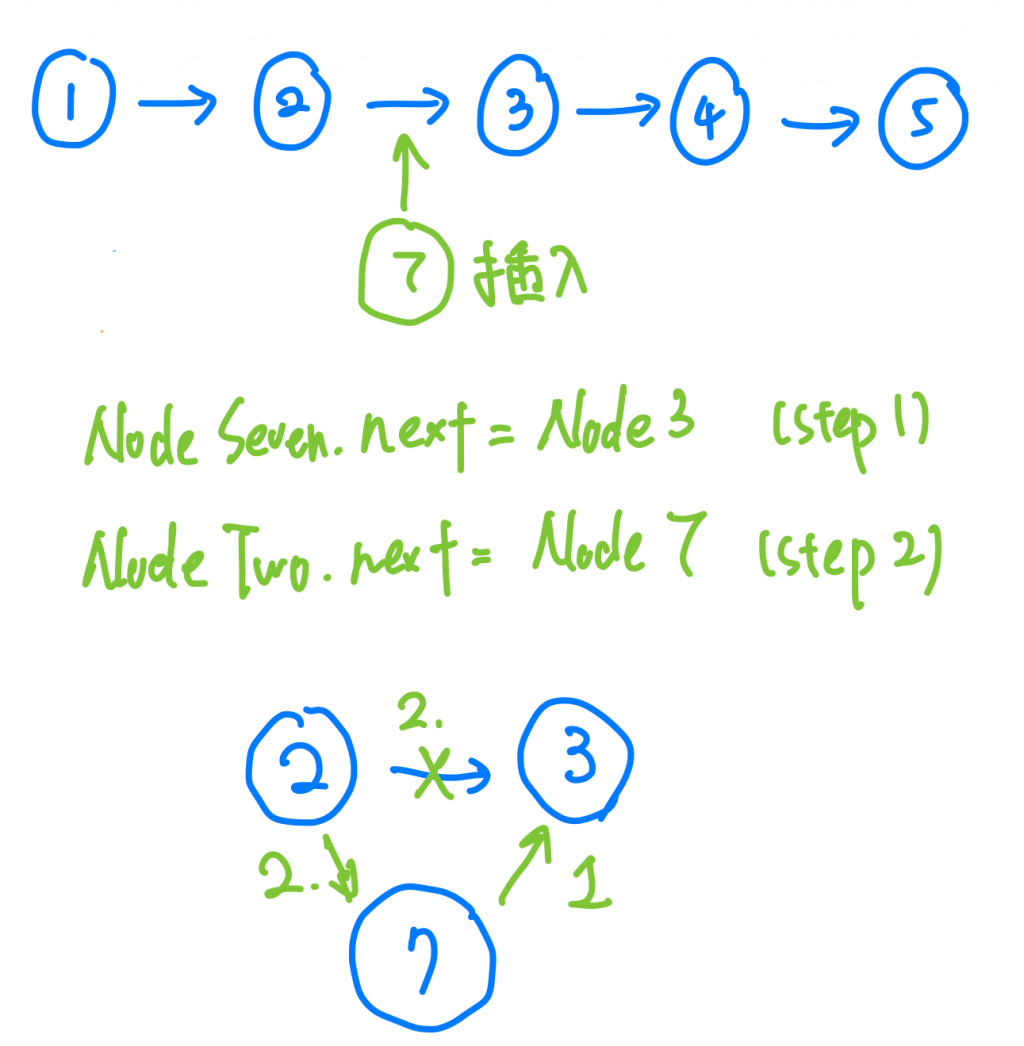 1 → 2 → 3 → 4 → 5
7 插入
Node Seven. next = Node 3 (step 1)
Node Two. next = Node 7 (step 2)
2.
2 3
2. 1
7